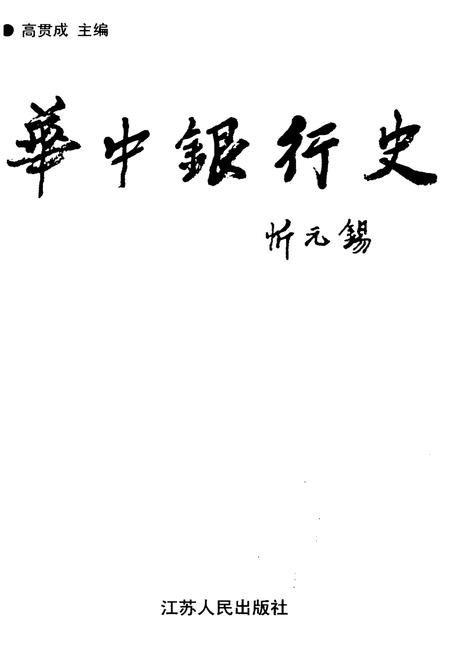 高贯成 主编
華中銀行史
忻元錫
江苏人民出版社